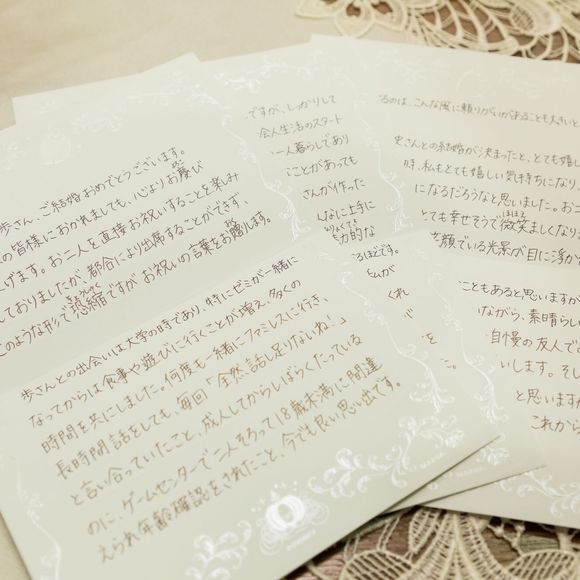 歩さん、ご結婚おめでとうございます。
の皆様におかれましても、心よりお慶び
よろこ
げます。お二人を直接お祝いすることを楽しみ
しておりましたが、都合により出席することができず、
このような形で恐縮ですがお祝いの言葉をお贈りします。
きょうしゅく
歩さんとの出会いは大学の時であり、特にゼミが一緒に
なってからは食事や遊びに行くことが増え、多くの
時間を共にしました。何度も一緒にファミレスに行き、
長時間話をしても、毎回「全然、話し足りないね！」
と言い合っていたこと、成人してからしばらくたっている
のに、ゲームセンターで二人そろって18歳未満に間違
えられ年齢確認をされたこと、今でも良い思い出です。
ですが、しっかりして
会人生活のスタート
一人暮らしであり
ことがあっても
さんが作った
んなに上手に
力的な
ほどです。
るのは、こんな風に頼りがいがあることも大きいと
史さんとの結婚が決まったと、とても嬉し
時、私もとても嬉しい気持ちになり、
になるだろうなと思いました。お二
とても幸せそうで微笑ましくなりま
ほほえ
顔でいる光景が目に浮か
こともあると思いますが
ながら、素晴らしい
自慢の友人で
いします。そし
と思いますが
これから